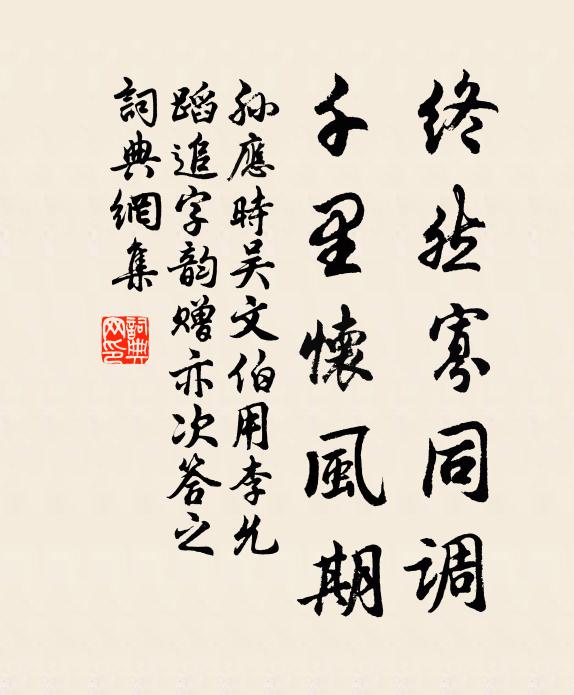 終然寡同調
千里懷風期
孫應時吴文伯用李允
蹈追字韵赠亦次答之
詞典網集
詞典網印